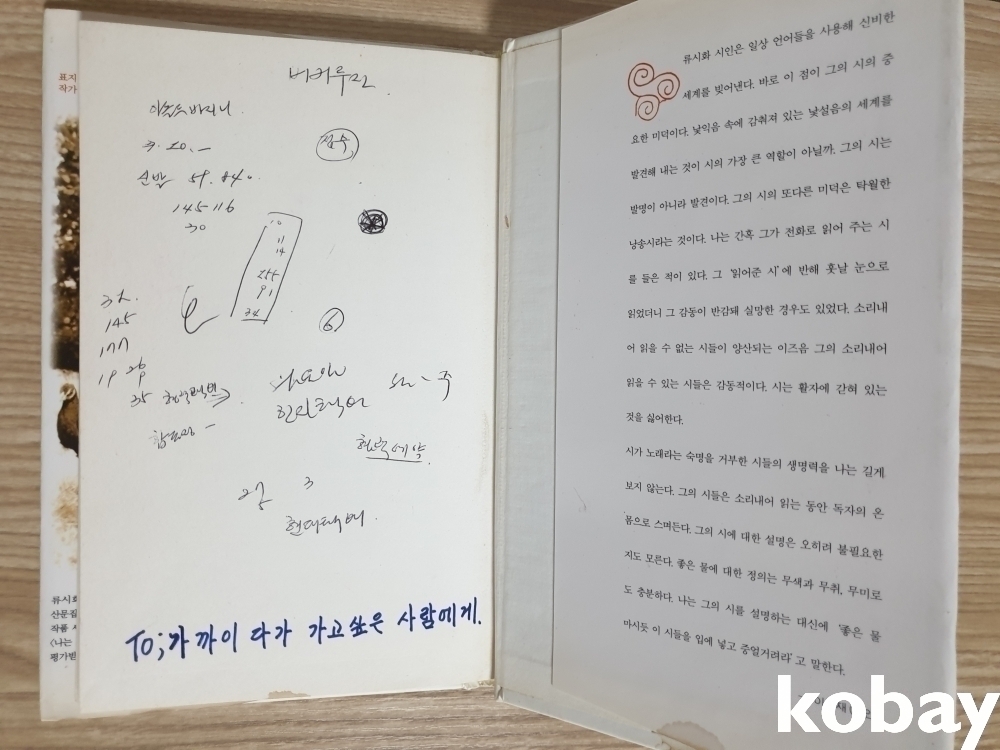 표지
작가
버버루만
3. 20. -
신발 59. 840.
145 116
30
점수
10
11
14
255
91
34
6
145
177
19 26
35
현대택배
예약
2장 3
현대택배.
TO;가까이 다가 가고싶은 사람에게.
류시화
산문집
작품
〈나는
평가받
류시화 시인은 일상 언어들을 사용해 신비한
세계를 빚어낸다. 바로 이 점이 그의 시의 중
요한 미덕이다. 낯익음 속에 감춰져 있는 낯설음의 세계를
발견해 내는 것이 시의 가장 큰 역할이 아닐까. 그의 시는
발명이 아니라 발견이다. 그의 시의 또다른 미덕은 탁월한
낭송시라는 것이다. 나는 간혹 그가 전화로 읽어 주는 시
를 들은 적이 있다. 그 '읽어준 시'에 반해 훗날 눈으로
읽었더니 그 감동이 반감돼 실망한 경우도 있었다. 소리내
어 읽을 수 없는 시들이 양산되는 이즈음 그의 소리내어
읽을 수 있는 시들은 감동적이다. 시는 활자에 갇혀 있는
것을 싫어한다.
시가 노래라는 숙명을 거부한 시들의 생명력을 나는 길게
보지 않는다. 그의 시들은 소리내어 읽는 동안 독자의 온
몸으로 스며든다. 그의 시에 대한 설명은 오히려 불필요한
지도 모른다. 좋은 물에 대한 정의는 무색과 무취, 무미로
도 충분하다. 나는 그의 시를 설명하는 대신에 '좋은 물
마시듯 이 시들을 입에 넣고 중얼거려라'고 말한다.
kobay